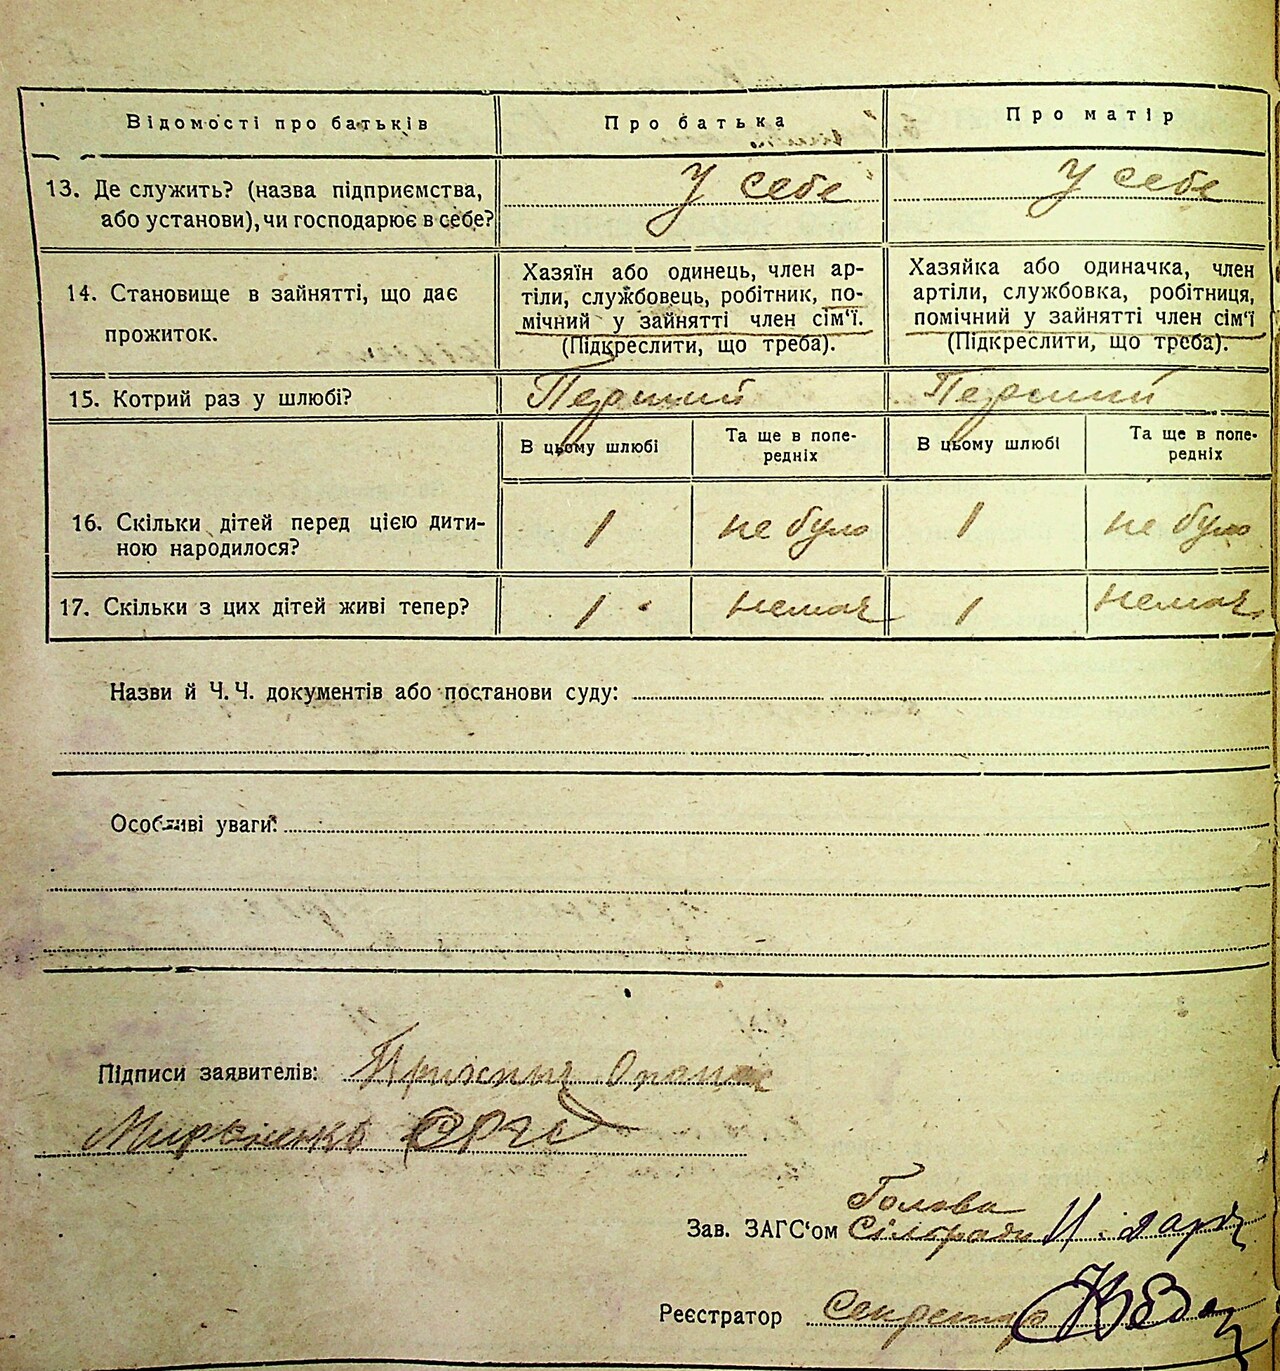 Відомості про батьків Про батька Про матір
13. Де служить? (назва підприємства, У себе У себе
або установи), чи господарює в себе?
Хазяїн або одинець, член ар- Хазяйка або одиначка, член
14. Становище в зайнятті, що дає тіли, службовець, робітник, по- артіли, службовка, робітниця,
мічний у зайнятті член сім'ї. помічний у зайнятті член сім'ї
прожиток. (Підкреслити, що треба). (Підкреслити, що треба).
15. Котрий раз у шлюбі? Перший Перший
В цьому шлюбі Та ще в попе- В цьому шлюбі Та ще в попе-
редніх редніх
16. Скільки дітей перед цією дити- 1 не було 1 не було
ною народилося?
17. Скільки з цих дітей живі тепер? 1 немає 1 немає
Назви й Ч. Ч. документів або постанови суду:
Особливі уваги:
Підписи заявителів: Опанас
Мироненко
Голова
Зав. ЗАГС'ом Сільради
Реєстратор Секретар